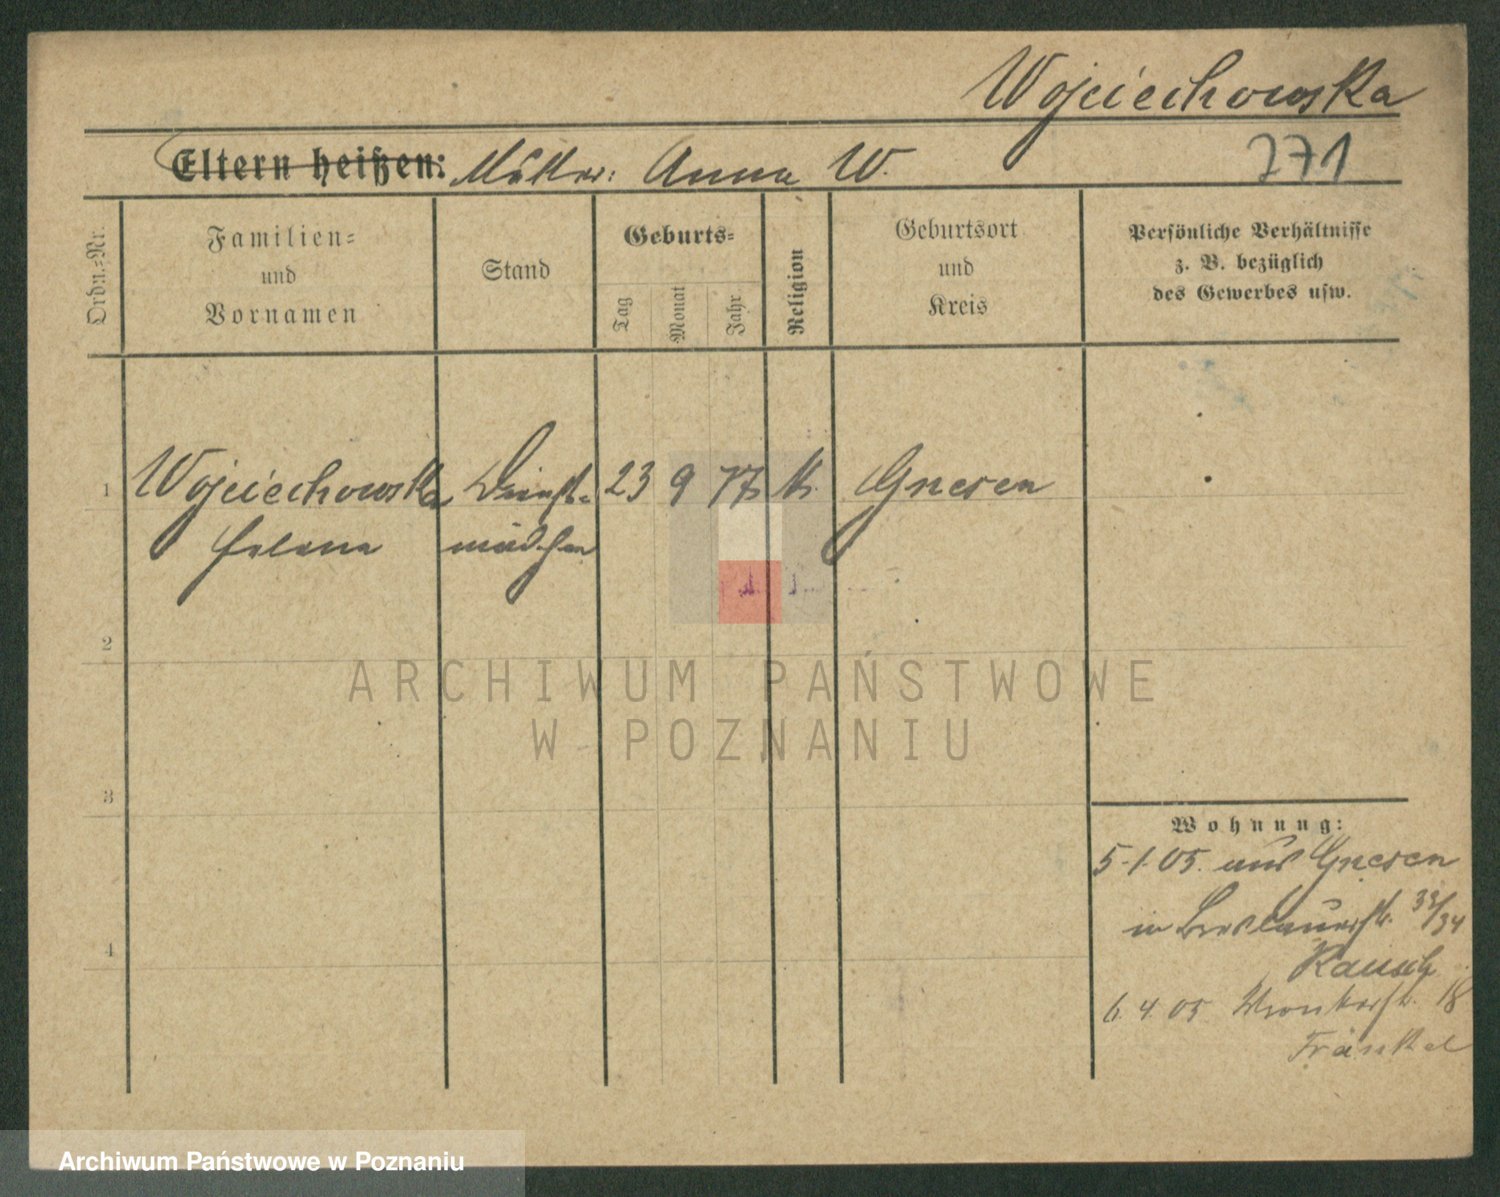 Wojciechowska
Eltern heißen: Mutter: Anna W.
271
Ordn.-Nr.
Familien-
und
Vornamen
Stand
Geburts-
Tag
Monat
Jahr
Religion
Geburtsort
und
Kreis
Persönliche Verhältnisse
z. B. bezüglich
des Gewerbes usw.
1 Wojciechowska Dienst- 23 9 77 k. Gnesen
Helena mädchen
2
ARCHIWUM PAŃSTWOWE
W POZNANIU
3
Wohnung:
5.1.05. aus Gnesen
in Breslauerstr. 33/34
Rausch
4
6.4.05 Wronkerstr. 18
Fränkel
Archiwum Państwowe w Poznaniu